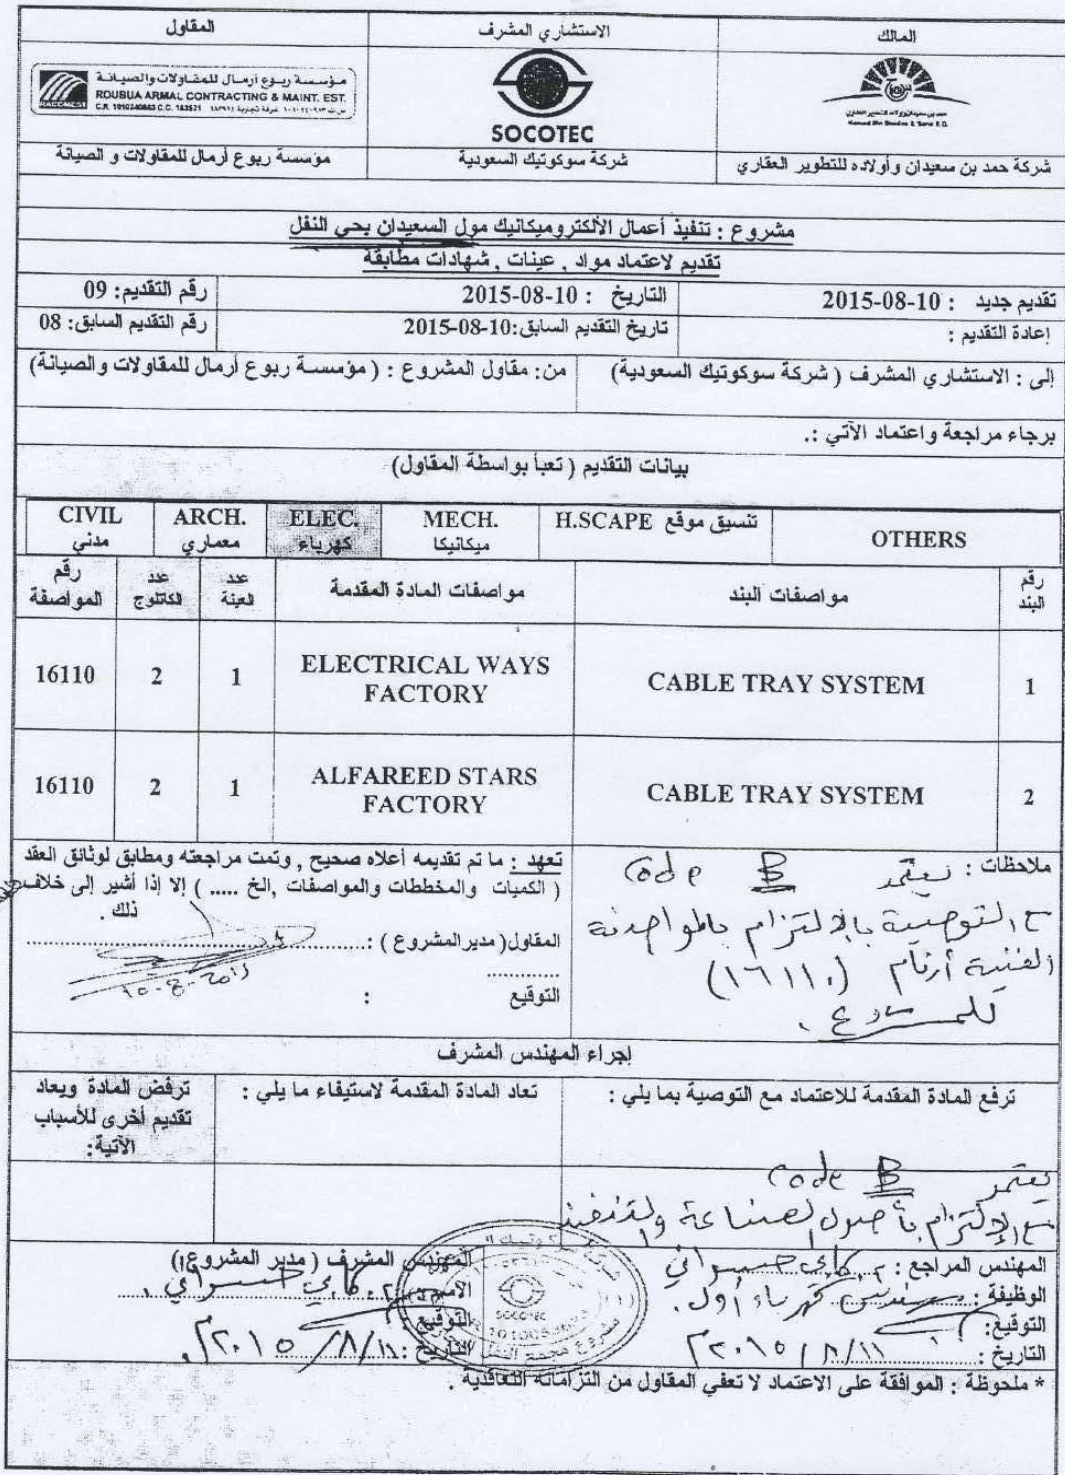 المالك
الاستشاري المشرف
المقاول
SOCOTEC
مؤسسة ربوع أرمال للمقاولات والصيانة
ROUBUA ARMAL CONTRACTING & MAINT. EST.
شركة حمد بن سعيدان وأولاده للتطوير العقاري
شركة سوكوتيك السعودية
مؤسسة ربوع أرمال للمقاولات و الصيانة
مشروع : تنفيذ أعمال الألكتروميكانيك مول السعيدان بحي النفل
تقديم لاعتماد مواد , عينات , شهادات مطابقة
تقديم جديد : 10-08-2015
التاريخ : 10-08-2015
رقم التقديم: 09
إعادة التقديم :
تاريخ التقديم السابق:10-08-2015
رقم التقديم السابق: 08
إلى : الاستشاري المشرف ( شركة سوكوتيك السعودية)
من: مقاول المشروع : ( مؤسسة ربوع أرمال للمقاولات والصيانة)
برجاء مراجعة واعتماد الآتي :.
بيانات التقديم ( تعبأ بواسطة المقاول)
CIVIL مدني
ARCH. معماري
ELEC. كهرباء
MECH. ميكانيكا
H.SCAPE تنسيق موقع
OTHERS
رقم البند
مواصفات البند
مواصفات المادة المقدمة
عدد العينة
عدد الكتالوج
رقم المواصفة
1
CABLE TRAY SYSTEM
ELECTRICAL WAYS FACTORY
1
2
16110
2
CABLE TRAY SYSTEM
ALFAREED STARS FACTORY
1
2
16110
ملاحظات : يعتمد Code B
مع التوصية بالالتزام بالمواصفة
الفنية أرقام (١٦١١٠)
للمشروع .
تعهد : ما تم تقديمه أعلاه صحيح , وتمت مراجعته ومطابق لوثائق العقد
( الكميات والمخططات والمواصفات ,الخ ..... ) إلا إذا أشير إلى خلاف
ذلك .
المقاول( مدير المشروع ) :
التوقيع :
إجراء المهندس المشرف
ترفع المادة المقدمة للاعتماد مع التوصية بما يلي :
تعاد المادة المقدمة لاستيفاء ما يلي :
ترفض المادة ويعاد
تقديم أخرى للأسباب
الآتية:
يعتمد Code B
مع الالتزام بأصول الصناعة والتنفيذ
المهندس المراجع :
الوظيفة : مهندس كهرباء أول .
التوقيع:
التاريخ : ١١/٨/٢٠١٥م
المهندس المشرف ( مدير المشروع)
الاسم :
التوقيع :
التاريخ : ١١/٨/٢٠١٥م
SOCOTEC
* ملحوظة : الموافقة على الاعتماد لا تعفي المقاول من التزاماته التعاقدية .